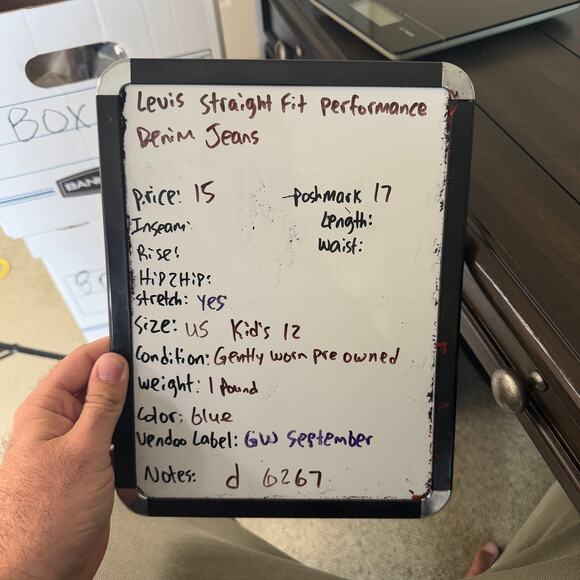 Levis Straight Fit Performance
Denim Jeans
Price: 15
Poshmark 17
Inseam:
Length:
Rise:
Waist:
Hip 2 Hip:
Stretch: yes
Size: US Kid's 12
Condition: Gently worn pre owned
Weight: 1 Pound
Color: blue
Vendoo Label: GW September
Notes: d 6267
BOX